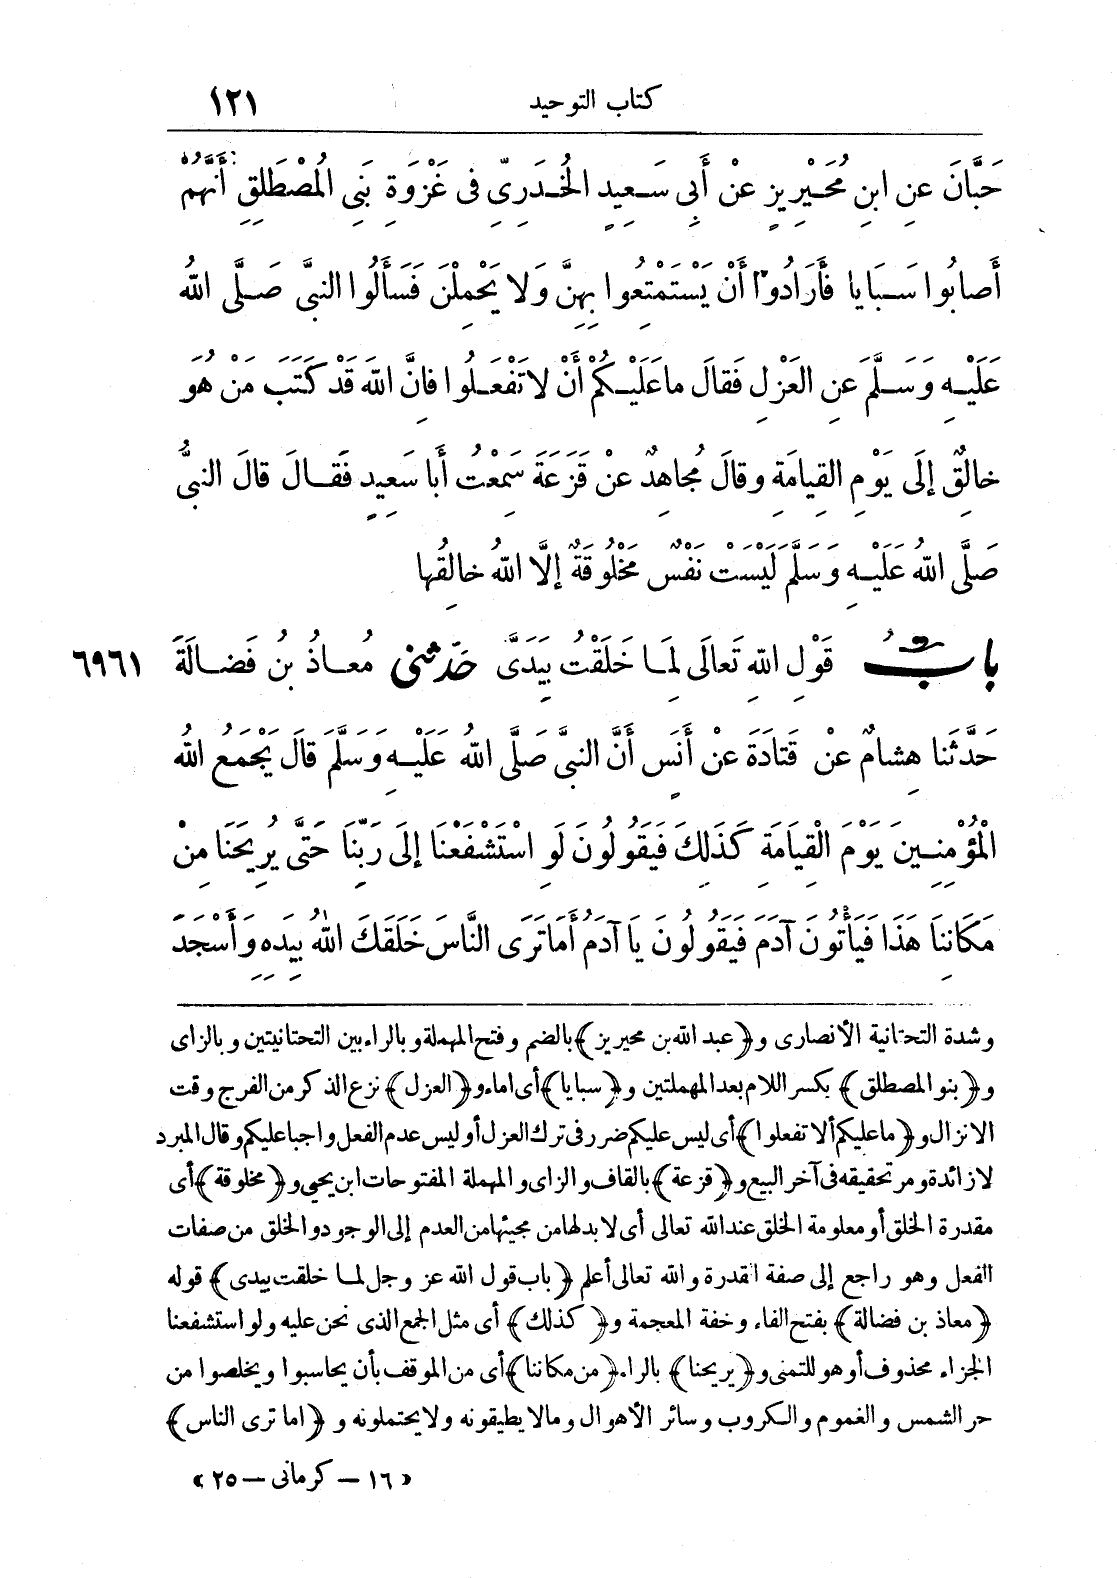 كتاب التوحيد ١٢١
حَبَّانَ عَنِ ابنِ مُحَيْرِيزٍ عَنْ أَبِى سَعِيدٍ الخُدَرِىِّ فى غَزْوَةِ بَنِى المُصْطَلِقِ أَنَّهُمْ
أَصابُوا سَبَايا فَأَرَادُوا أَنْ يَسْتَمْتِعُوا بِهِنَّ وَلا يَحْمِلْنَ فَسَأَلُوا النبىَّ صَلَّى اللهُ
عَلَيْهِ وَسَلَّمَ عَنِ العَزْلِ فَقالَ ماعَلَيْكُمْ أَنْ لا تَفْعَلُوا فانَّ اللهَ قَدْ كَتَبَ مَنْ هُوَ
خالِقٌ إلَى يَوْمِ القِيامَةِ وقالَ مُجاهِدٌ عَنْ قَزَعَةَ سَمِعْتُ أَبا سَعِيدٍ فَقالَ قالَ النبىُّ
صَلَّى اللهُ عَلَيْهِ وَسَلَّمَ لَيْسَتْ نَفْسٌ مَخْلُوقَةٌ إلَّا اللهُ خالِقُها
بابُ قَوْلِ اللهِ تَعالَى لِمَا خَلَقْتُ بِيَدَىَّ حَدَّثنى مُعاذُ بنُ فَضالَةَ ٦٩٦١
حَدَّثَنا هِشامٌ عَنْ قَتادَةَ عَنْ أَنَسٍ أَنَّ النبىَّ صَلَّى اللهُ عَلَيْهِ وَسَلَّمَ قالَ يَجْمَعُ اللهُ
الْمُؤْمِنِينَ يَوْمَ الْقِيامَةِ كَذَلِكَ فَيَقُولُونَ لَوِ اسْتَشْفَعْنَا إلَى رَبِّنَا حَتَّى يُرِيحَنَا مِنْ
مَكَانِنَا هَذَا فَيَأْتُونَ آدَمَ فَيَقُولُونَ يا آدَمُ أَمَا تَرَى النَّاسَ خَلَقَكَ اللهُ بِيَدِهِ وَأَسْجَدَ
وشدة التحتانية الأنصارى و﴿عبد الله بن محيريز﴾ بالضم وفتح المهملة وبالراء بين التحتانيتين وبالزاى
و﴿بنو المصطلق﴾ بكسر اللام بعد المهملتين و﴿سبايا﴾ أى اماء و﴿العزل﴾ نزع الذكر من الفرج وقت
الانزال و﴿ماعليكم ألا تفعلوا﴾ أى ليس عليكم ضرر فى ترك العزل أو ليس عدم الفعل واجبا عليكم وقال المبرد
لا زائدة ومر تحقيقه فى آخر البيع و﴿قزعة﴾ بالقاف والزاى والمهملة المفتوحات ابن يحيى و﴿مخلوقة﴾ أى
مقدرة الخلق أو معلومة الخلق عند الله تعالى أى لا بد لها من مجيئها من العدم إلى الوجود والخلق من صفات
الفعل وهو راجع إلى صفة القدرة والله تعالى أعلم ﴿باب قول الله عز وجل لما خلقت بيدى﴾ قوله
﴿معاذ بن فضالة﴾ بفتح الفاء وخفة المعجمة و﴿كذلك﴾ أى مثل الجمع الذى نحن عليه ولو استشفعنا
الجزاء محذوف أو هو للتمنى و﴿يريحنا﴾ بالراء ﴿من مكاننا﴾ أى من الموقف بأن يحاسبوا ويخلصوا من
حر الشمس والغموم والكروب وسائر الأهوال ومالا يطيقونه ولا يحتملونه و﴿اما ترى الناس﴾
« ١٦ – كرمانى – ٢٥ »